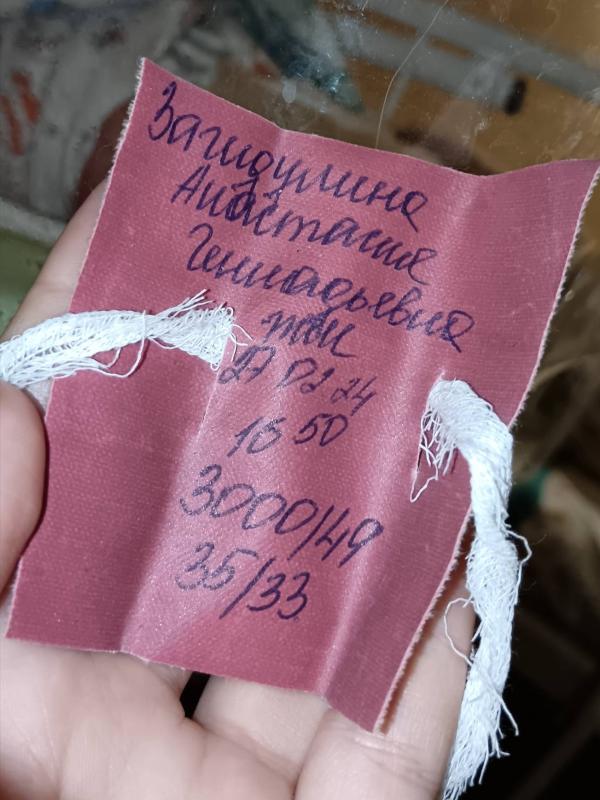 Загидулина
Анастасия
Геннадьевна
жен
27 02 24
15 50
3000/49
35/33